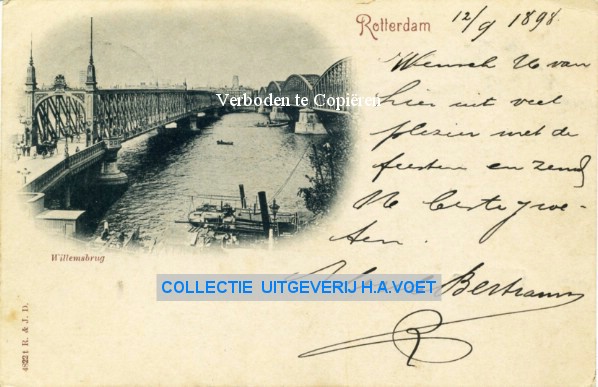 Rotterdam
12/9 1898.
Wensch U van
hier uit veel
plezier met de
feesten en zend
U beste groe-
ten.
Bertrams
Verboden te Copiëren
Willemsbrug
COLLECTIE UITGEVERIJ H.A.VOET
R. & J. D.